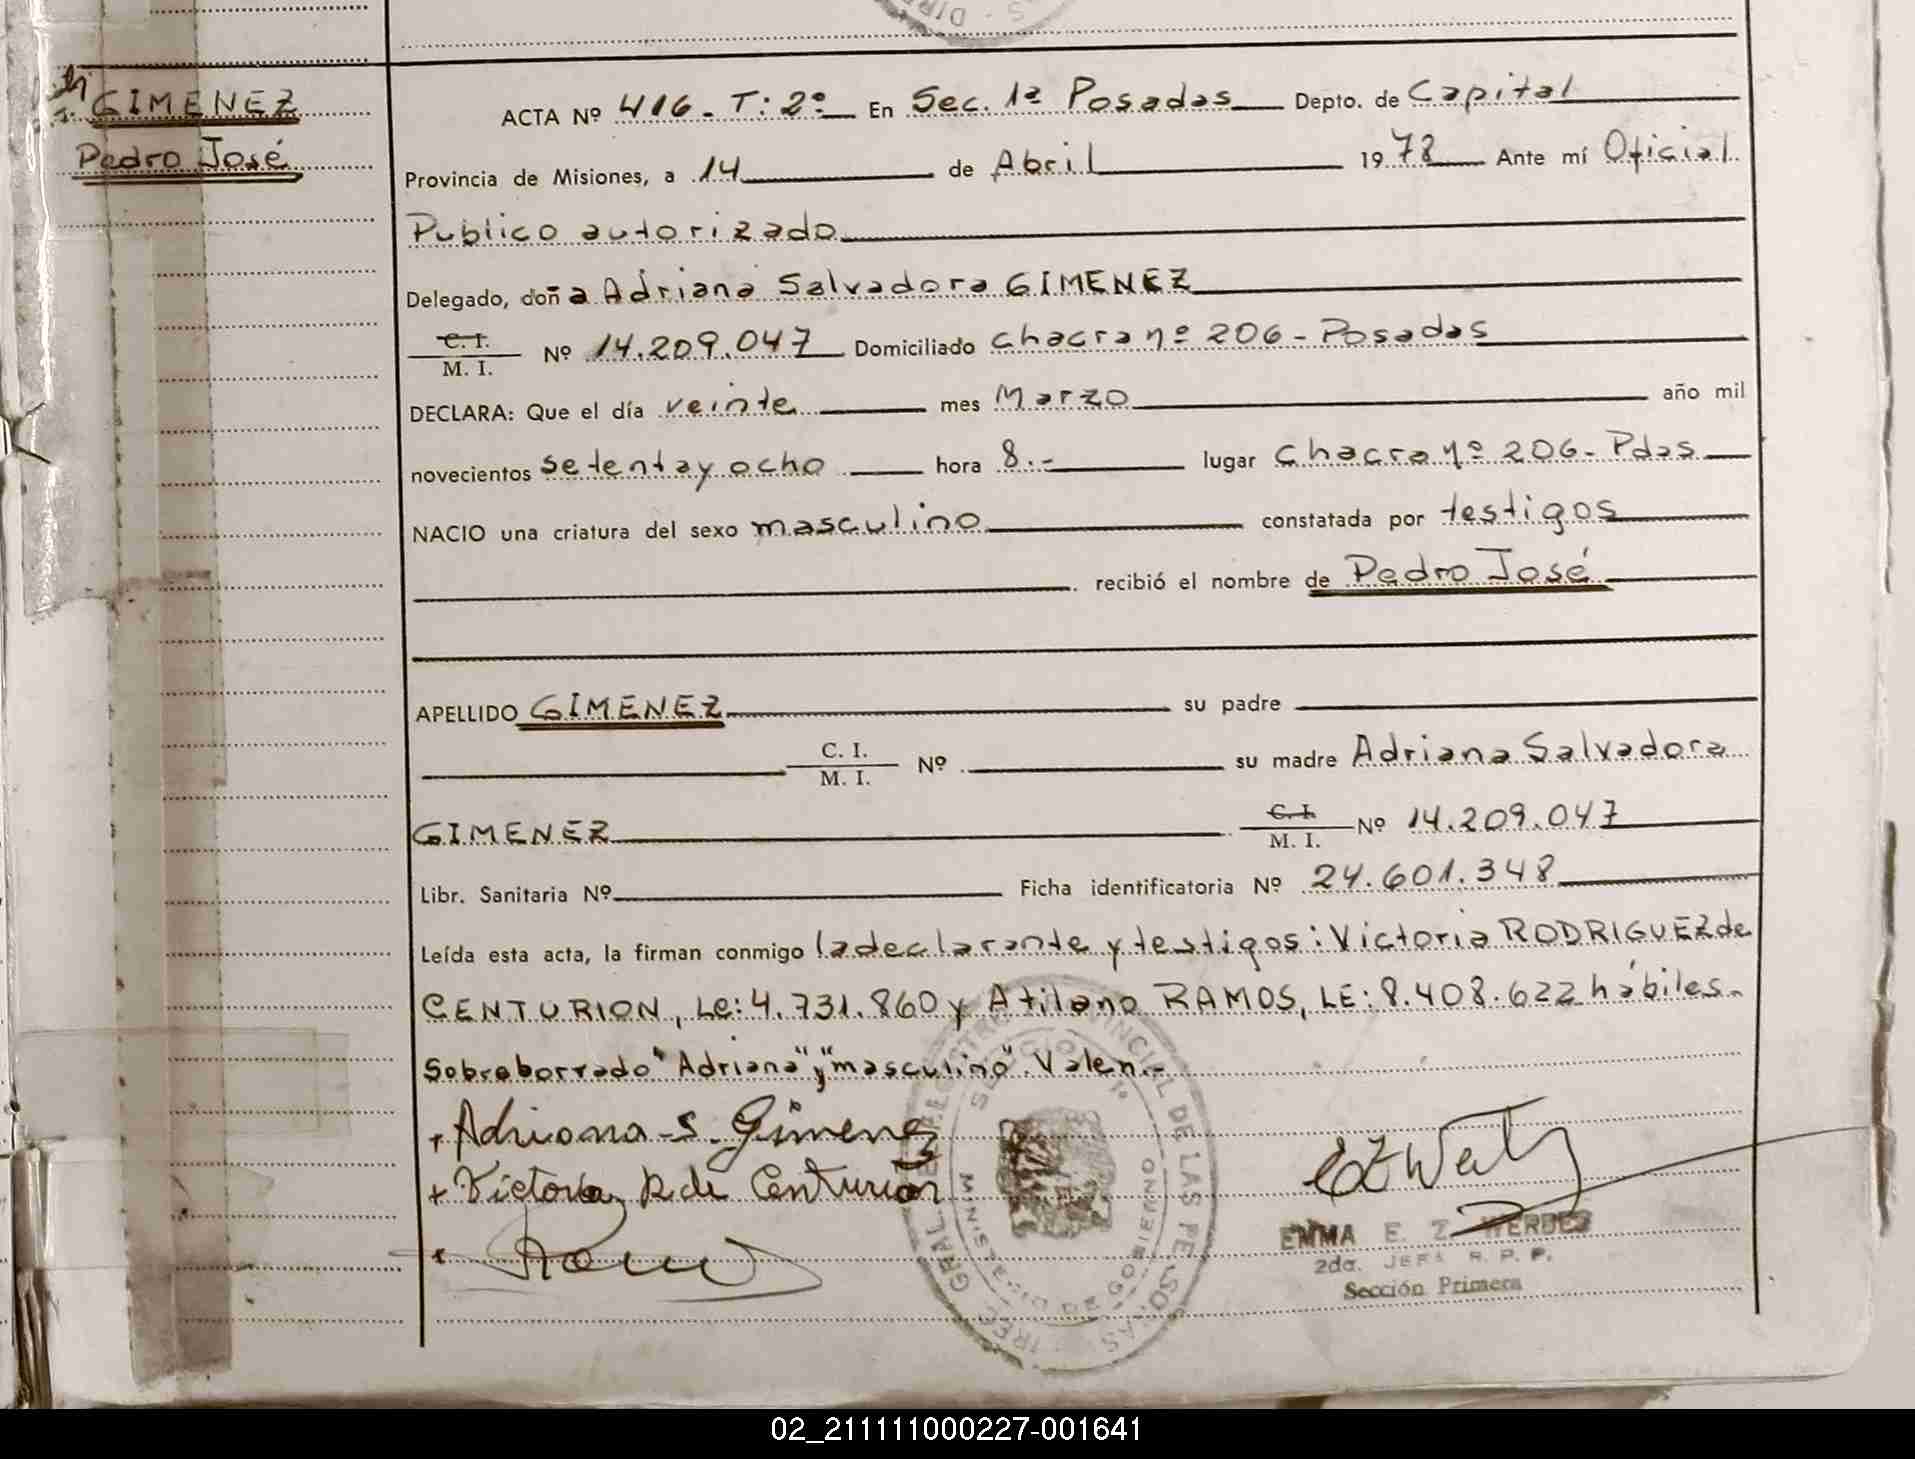 GIMENEZ
Pedro José
ACTA Nº 416. T: 2º En Sec. 1ª Posadas Depto. de Capital
Provincia de Misiones, a 14 de Abril 1978 Ante mí Oficial
Publico autorizado
Delegado, doña Adriana Salvadora GIMENEZ
C. I.
M. I. Nº 14.209.047 Domiciliado chacra nº 206 - Posadas
DECLARA: Que el día veinte mes Marzo año mil
novecientos setenta y ocho hora 8.- lugar chacra nº 206 - Pdas
NACIO una criatura del sexo masculino constatada por testigos
recibió el nombre de Pedro José
APELLIDO GIMENEZ su padre
C. I.
M. I. Nº su madre Adriana Salvadora
GIMENEZ C. I.
M. I. Nº 14.209.047
Libr. Sanitaria Nº Ficha identificatoria Nº 24.601.348
Leída esta acta, la firman conmigo la declarante y testigos: Victoria RODRIGUEZ de
CENTURION, LC: 4.731.860 y Atilano RAMOS, LE: 8.408.622 hábiles.-
Sobreborrado "Adriana" y "masculino". Valen.-
Adriana S. Gimenez
Victoria R. de Centurion
EMMA E. Z.
2da. JEFA R. P. P.
Sección Primera
02_211111000227-001641